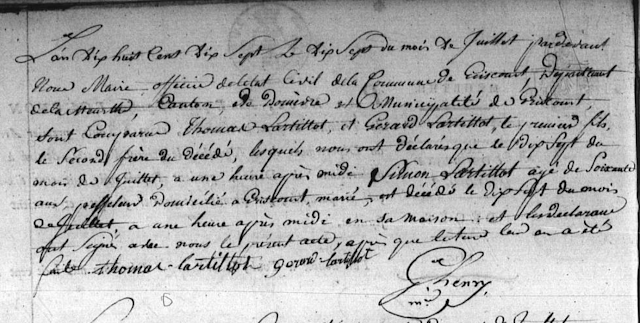 L'an Dix huit Cens Dix Sept Le Dix Sept du mois De Juillet pardevant
Nous Maire officier de l'etat Civil de la Commune de Criscourt Departement
de la Meurthe, Canton De Domèvre et Municipalité de
sont Comparus Thomas Lartillot, et Gerard Lartillot, le premier fils,
le second frère du décédé, lesquels nous ont déclarés que le dix Sept du
mois de Juillet, a une heure après midi Simon Lartillot agé de Soixante
ans Domicilié a marié, est décédé le Dix Sept du mois
de Juillet a une heure après midi en sa maison et les declarans
ont signés avec nous le présent acte, après que lecture leur en a été
faite thomas lartillot gerard lartillot
Chenry
m.re